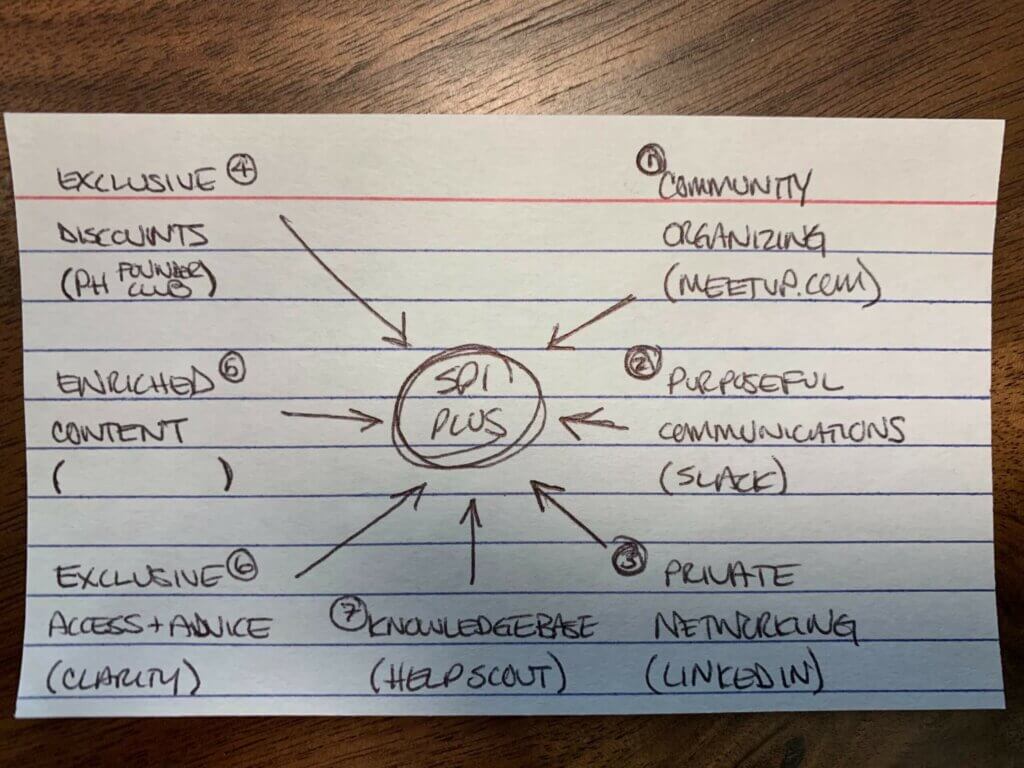 EXCLUSIVE ④
DISCOUNTS
(PH FOUNDER CLUB)
① COMMUNITY
ORGANIZING
(MEETUP.COM)
ENRICHED ⑤
CONTENT
( )
SPI
PLUS
② PURPOSEFUL
COMMUNICATIONS
(SLACK)
EXCLUSIVE ⑥
ACCESS + ADVICE
(CLARITY)
⑦ KNOWLEDGEBASE
(HELPSCOUT)
③ PRIVATE
NETWORKING
(LINKEDIN)